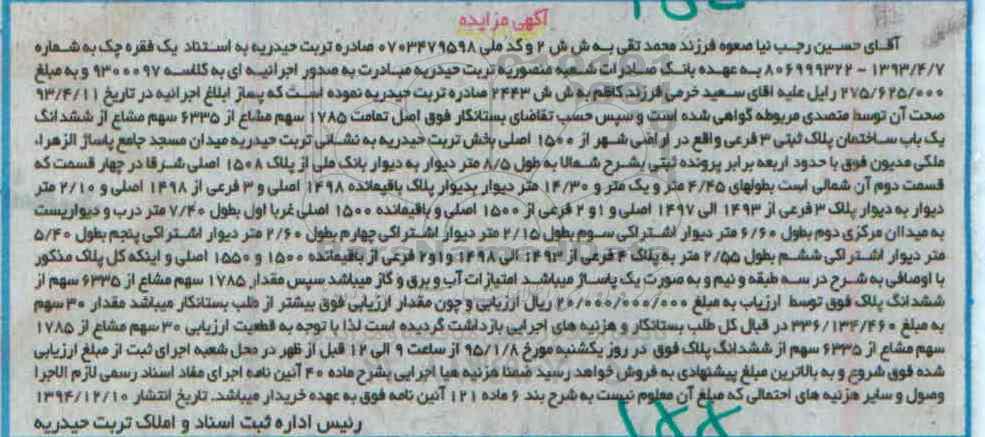 آگهی مزایده
آقای حسین رجب نیا صعوه فرزند محمد تقی به ش ش ۲ و کد ملی ۰۷۰۳۴۷۹۵۹۸ صادره تربت حیدریه به استناد یک فقره چک به شماره
۸۰۶۹۹۹۳۲۲ – ۱۳۹۳/۴/۷ به عهده بانک صادرات شعبه منصوریه تربت حیدریه مبادرت به صدور اجرائیه ای به کلاسه ۹۳۰۰۰۹۷ و به مبلغ
۲۷۵/۶۲۵/۰۰۰ رایل علیه اقای سعید خرمی فرزند کاظم به ش ش ۲۴۴۳ صادره تربت حیدریه نموده است که پس از ابلاغ اجرائیه در تاریخ ۹۳/۴/۱۱
صحت آن توسط متصدی مربوطه گواهی شده است و سپس حسب تقاضای بستانکار فوق اصل تمامت ۱۷۸۵ سهم مشاع از ۶۳۳۵ سهم مشاع از ششدانگ
یک باب ساختمان پلاک ثبتی ۳ فرعی واقع در اراضی شهر از ۱۵۰۰ اصلی بخش تربت حیدریه به نشانی تربت حیدریه میدان مسجد جامع پاساژ الزهرا،
ملکی مدیون فوق با حدود اربعه برابر پرونده ثبتی بشرح شمالا به طول ۸/۵ متر دیوار به دیوار بانک ملی از پلاک ۱۵۰۸ اصلی شرقا در چهار قسمت که
قسمت دوم آن شمالی است بطولهای ۴/۴۵ متر و یک متر و ۱۴/۳۰ متر دیوار بدیوار پلاک باقیمانده ۱۴۹۸ اصلی و ۳ فرعی از ۱۴۹۸ اصلی و ۲/۱۰ متر
دیوار به دیوار پلاک ۳ فرعی از ۱۴۹۳ الی ۱۴۹۷ اصلی و ۱و ۲ فرعی از ۱۵۰۰ اصلی و باقیمانده ۱۵۰۰ اصلی غربا اول بطول ۷/۴۰ متر درب و دیواریست
به میدان مرکزی دوم بطول ۶/۶۰ متر دیوار اشتراکی سوم بطول ۲/۱۵ متر دیوار اشتراکی چهارم بطول ۲/۶۰ متر دیوار اشتراکی پنجم بطول ۵/۴۰
متر دیوار اشتراکی ششم بطول ۲/۵۵ متر به پلاک ۴ فرعی از ۱۴۹۳ الی ۱۴۹۸ و۱و۲ فرعی از باقیمانده ۱۵۰۰ و ۱۵۵۰ اصلی و اینکه کل پلاک مذکور
با اوصافی به شرح در سه طبقه و نیم و به صورت یک پاساژ میباشد امتیازات آب و برق و گاز میباشد سپس مقدار ۱۷۸۵ سهم مشاع از ۶۳۳۵ سهم از
ششدانگ پلاک فوق توسط ارزیاب به مبلغ ۲۰/۰۰۰/۰۰۰/۰۰۰ ریال ارزیابی و چون مقدار ارزیابی فوق بیشتر از طلب بستانکار میباشد مقدار ۳۰ سهم
به مبلغ ۳۳۶/۱۳۴/۴۶۰ در قبال کل طلب بستانکار و هزنیه های اجرایی بازداشت گردیده است لذا با توجه به قطعیت ارزیابی ۳۰ سهم مشاع از ۱۷۸۵
سهم مشاع از ۶۳۳۵ سهم از ششدانگ پلاک فوق در روز یکشنبه مورخ ۹۵/۱/۸ از ساعت ۹ الی ۱۲ قبل از ظهر در محل شعبه اجرای ثبت از مبلغ ارزیابی
شده فوق شروع و به بالاترین مبلغ پیشنهادی به فروش خواهد رسید ضمنا هزنیه هیا اجرایی بشرح ماده ۴۰ آئین نامه اجرای مفاد اسناد رسمی لازم الاجرا
وصول و سایر هزنیه های احتمالی که مبلغ آن معلوم نیست به شرح بند ۶ ماده ۱۲۱ آئین نامه فوق به عهده خریدار میباشد. تاریخ انتشار ۱۳۹۴/۱۲/۱۰
رئیس اداره ثبت اسناد و املاک تربت حیدریه